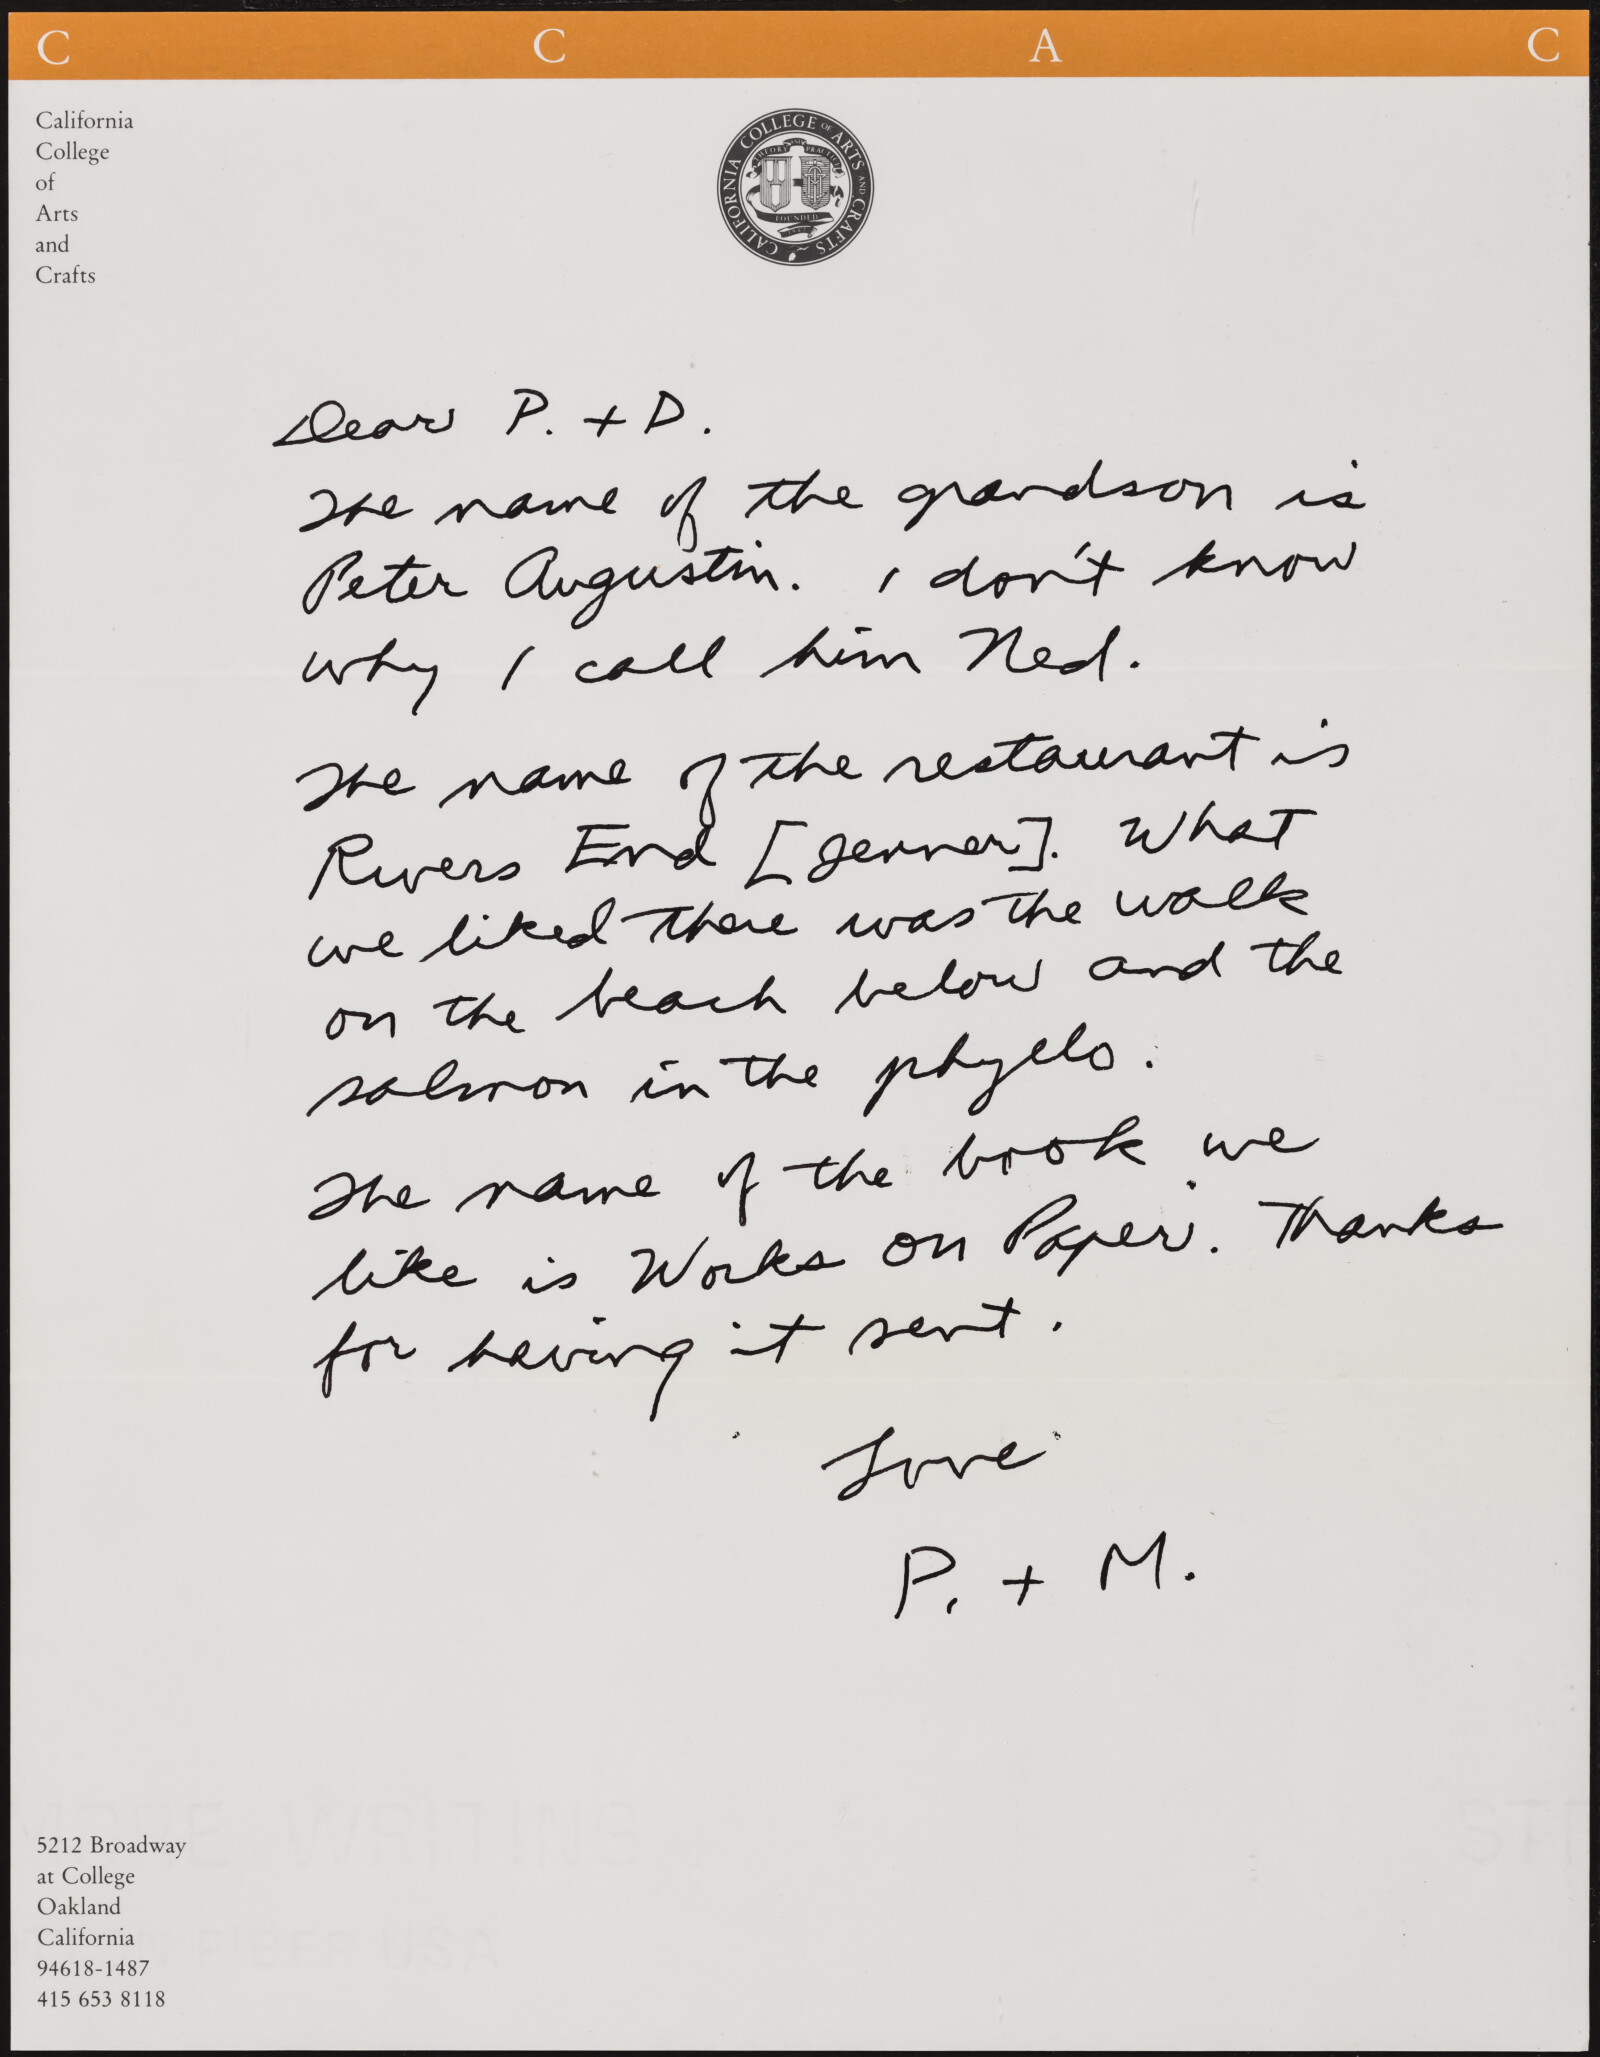 C C A C
California
College
of
Arts
and
Crafts
CALIFORNIA COLLEGE OF ARTS AND CRAFTS
THEORY AND PRACTICE
FOUNDED
Dear P. + D.
The name of the grandson is
Peter Augustin. I don't know
why I call him Ned.
The name of the restaurant is
Rivers End [Jenner]. What
we liked there was the walk
on the beach below and the
salmon in the phyllo.
The name of the book we
like is Works on Paper. Thanks
for having it sent.
Love
P. + M.
5212 Broadway
at College
Oakland
California
94618-1487
415 653 8118